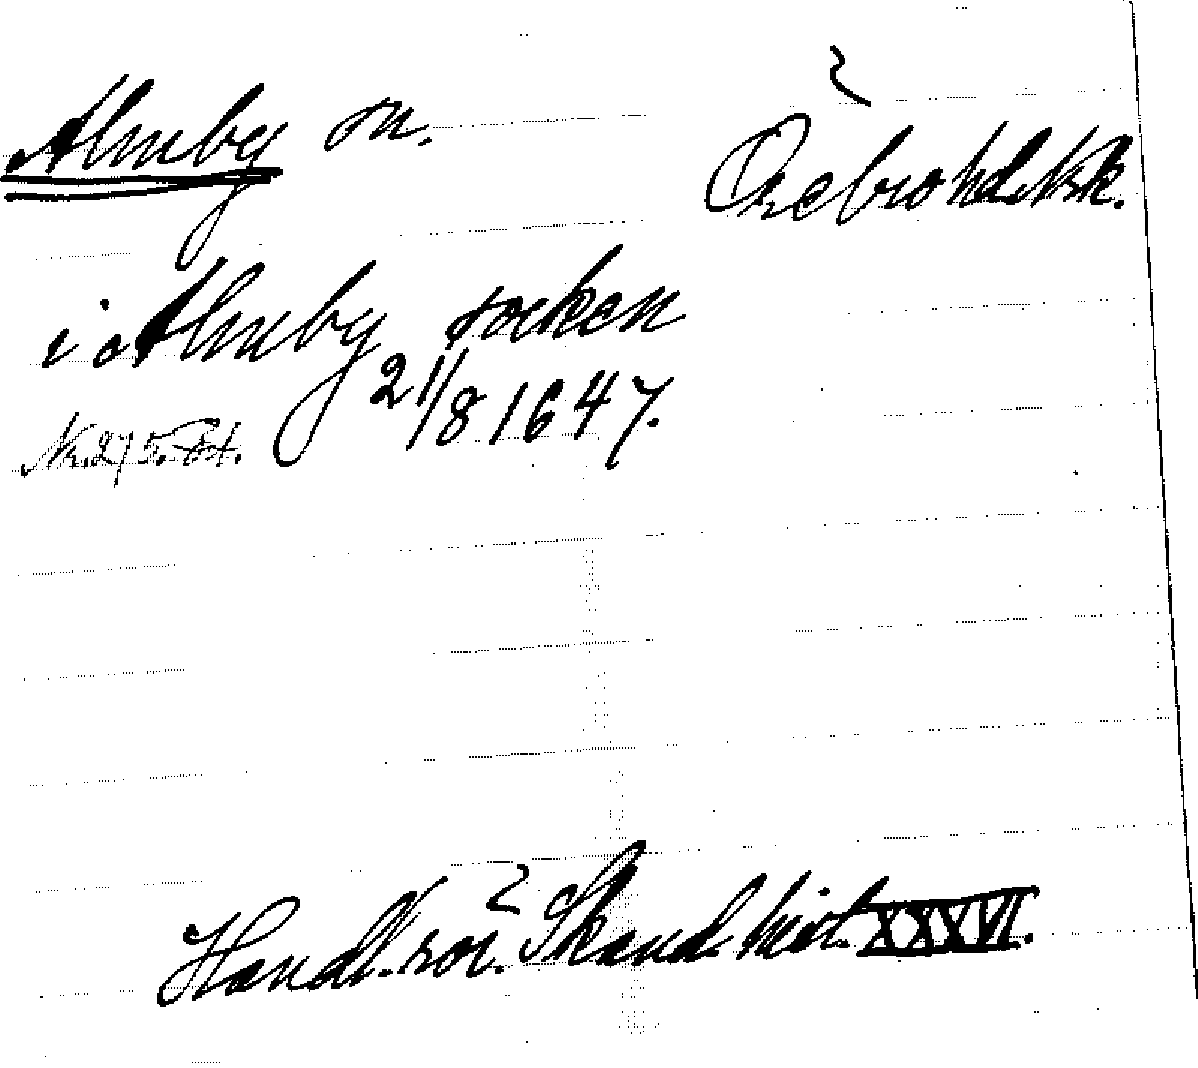 Almby sn.
Örebro hd. Nk.
i Almby socken
21/8 1647.
Nr. 275. 64.
Handl. rör. Skand. hist. XXXVI.